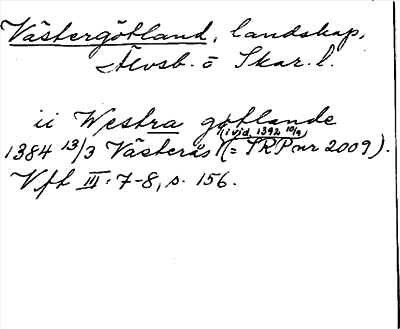 Västergötland, landskap,
Älvsb. o Skar. l.
ii Westra götlande
(i vid. 1392 10/9)
1384 13/3 Västerås (= SRP nr 2009).
Vft III: 7-8, s. 156.